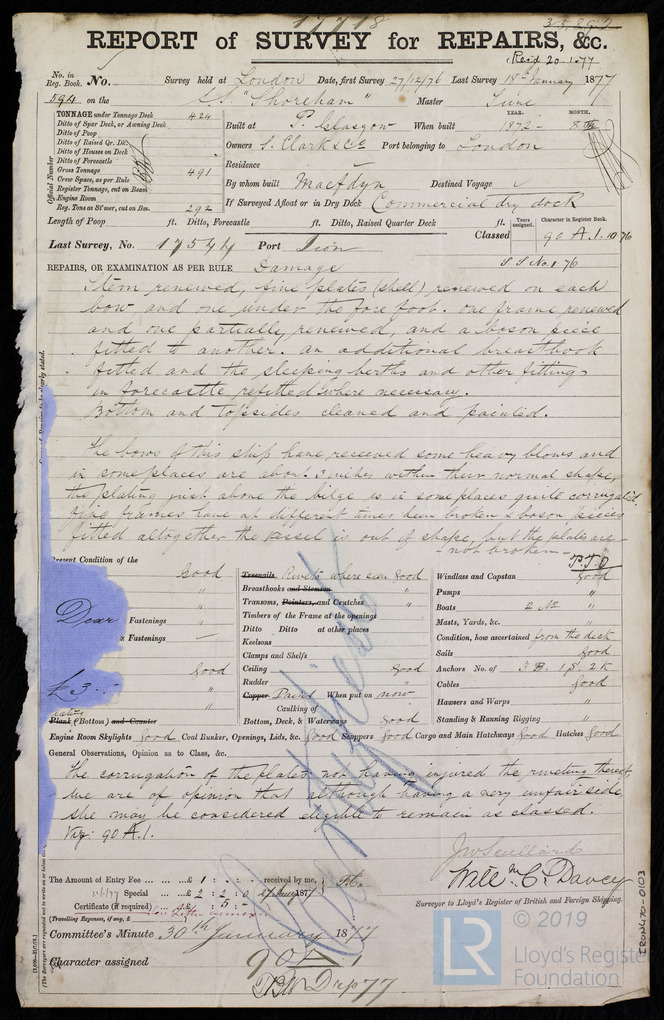 17718
REPORT of SURVEY for REPAIRS, &c.
Rec'd 20.1.77
No. in Reg. Book. No. Survey held at London Date, first Survey 27/12/76 Last Survey 18th January 1877
594 on the S.S. "Shoreham" Master
TONNAGE under Tonnage Deck 424
Ditto of Spar Deck, or Awning Deck
Ditto of Poop
Ditto of Raised Qr. Dk.
Ditto of Houses on Deck
Ditto of Forecastle
Gross Tonnage 491
Crew Space, as per Rule
Register Tonnage, cut on Beam
Engine Room
Reg. Tons as St'mer, cut on Bm. 292
Official Number
YEAR. MONTH.
Built at P. Glasgow When built 1872 8th
Owners S. Clark & Co Port belonging to London
Residence
By whom built MacFdyn Destined Voyage
If Surveyed Afloat or in Dry Dock Commercial dry dock
Length of Poop ft. Ditto, Forecastle ft. Ditto, Raised Quarter Deck ft.
Years assigned. Character in Register Book.
Last Survey, No. 17544 Port Lion Classed 90 A.1. 10 76
S S No.1 76
REPAIRS, OR EXAMINATION AS PER RULE Damage
Stem renewed, five plates (shell) renewed on each
bow, and one under the fore foot. One frame renewed
and one partially renewed, and a boson piece
fitted to another. an additional breasthook
fitted and the sleeping berths and other fittings
in forecastle refitted where necessary.
Bottom and Topsides cleaned and painted.
The bows of this ship have received some heavy blows and
in some places are about 3 inches within their normal shape,
the plating just above the bilge is in some places quite corrugated.
frames have at different times been broken & boson pieces
fitted altogether the vessel is out of shape, but the plates are
not broken
P.T.O
Present Condition of the
Good
"
Dear Fastenings "
Fastenings —
Good
£3 "
"
plates
Plank (Bottom) and Counter
Treenails Rivets where seen Good
Breasthooks and Stemson "
Transoms, Pointers, and Crutches "
Timbers of the Frame at the openings
Ditto Ditto at other places
Keelsons
Clamps and Shelfs
Ceiling Good
Rudder "
Copper Paint When put on now
Caulking of
Bottom, Deck, & Waterways Good
Windlass and Capstan Good
Pumps "
Boats 2 No "
Masts, Yards, &c. "
Condition, how ascertained from the deck
Sails Good
Anchors No. of 3 B. 1 S. 2 K
Cables Good
Hawsers and Warps "
Standing & Running Rigging "
Engine Room Skylights Good Coal Bunker, Openings, Lids, &c. Good Scuppers Good Cargo and Main Hatchways Good Hatches Good
General Observations, Opinion as to Class, &c.
The corrugation of the plates not having injured the riveting thereof,
we are of opinion that although having a very unfair side
she may be considered eligible to remain as classed.
Viz: 90 A.1.
The Amount of Entry Fee £1 : - : - received by me,
Special £ 2 : 2 : 0 1877
Certificate (if required) £ : 5 : -
(Travelling Expenses, if any, £ )
Will. C. Davey
Surveyor to Lloyd's Register of British and Foreign Shipping.
Committee's Minute 30th January 1877
Character assigned 90 A 1
77
IRON470-0103
LR
© 2019
Lloyd's Register
Foundation